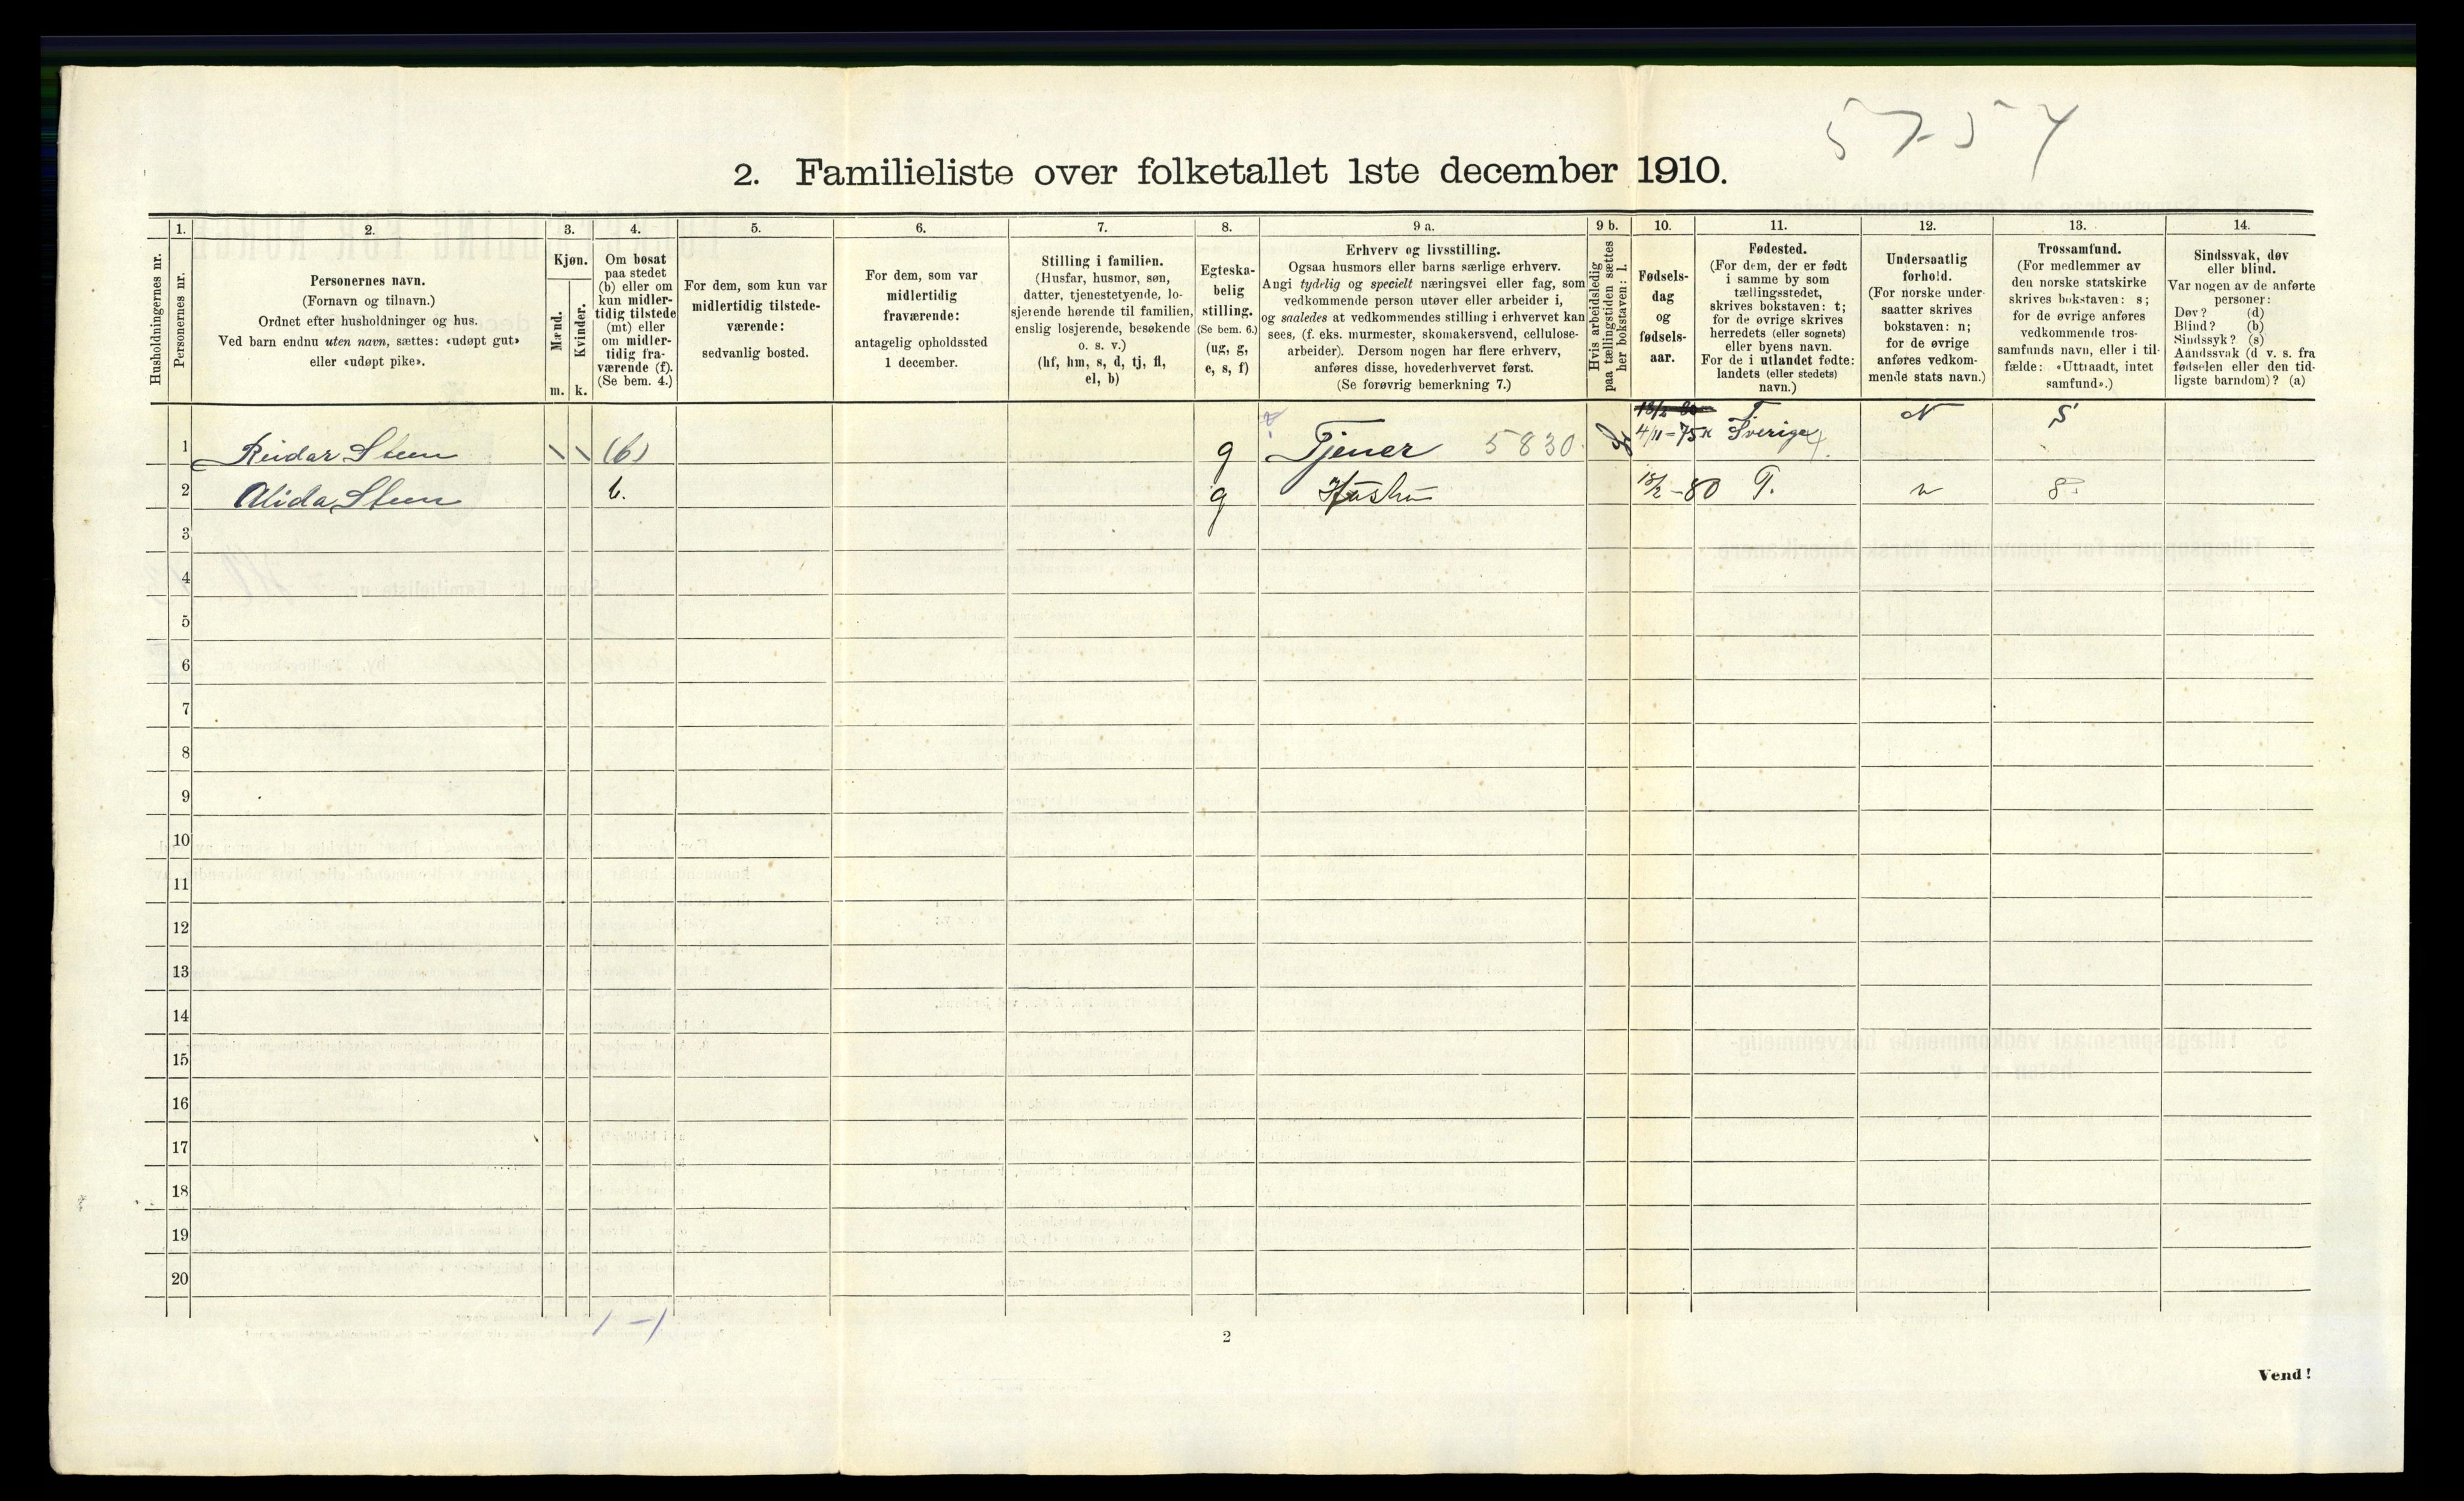 57-54
2. Familieliste over folketallet 1ste december 1910.
Husholdningernes nr.
1.
Personernes nr.
2.
Personernes navn.
(Fornavn og tilnavn.)
Ordnet efter husholdninger og hus.
Ved barn endnu uten navn, sættes: «udøpt gut»
eller «udøpt pike».
3.
Kjøn.
Mænd.
Kvinder.
m. k.
4.
Om bosat
paa stedet
(b) eller om
kun midler-
tidig tilstede
(mt) eller
om midler-
tidig fra-
værende (f).
(Se bem. 4.)
5.
For dem, som kun var
midlertidig tilstede-
værende:
sedvanlig bosted.
6.
For dem, som var
midlertidig
fraværende:
antagelig opholdssted
1 december.
7.
Stilling i familien.
(Husfar, husmor, søn,
datter, tjenestetyende, lo-
sjerende hørende til familien,
enslig losjerende, besøkende
o. s. v.)
(hf, hm, s, d, tj, fl,
el, b)
8.
Egteska-
belig
stilling.
(Se bem. 6.)
(ug, g,
e, s, f)
9 a.
Erhverv og livsstilling.
Ogsaa husmors eller barns særlige erhverv.
Angi tydelig og specielt næringsvei eller fag, som
vedkommende person utøver eller arbeider i,
og saaledes at vedkommendes stilling i erhvervet kan
sees, (f. eks. murmester, skomakersvend, cellulose-
arbeider). Dersom nogen har flere erhverv,
anføres disse, hovederhvervet først.
(Se forøvrig bemerkning 7.)
9 b.
Hvis arbeidsledig
paa tællingstiden sættes
her bokstaven: l.
10.
Fødsels-
dag
og
fødsels-
aar.
11.
Fødested.
(For dem, der er født
i samme by som
tællingsstedet,
skrives bokstaven: t;
for de øvrige skrives
herredets (eller sognets)
eller byens navn.
For de i utlandet fødte:
landets (eller stedets)
navn.)
12.
Undersaatlig
forhold.
(For norske under-
saatter skrives
bokstaven: n;
for de øvrige
anføres vedkom-
mende stats navn.)
13.
Trossamfund.
(For medlemmer av
den norske statskirke
skrives bokstaven: s;
for de øvrige anføres
vedkommende tros-
samfunds navn, eller i til-
fælde: «Uttraadt, intet
samfund».)
14.
Sindssvak, døv
eller blind.
Var nogen av de anførte
personer:
Døv? (d)
Blind? (b)
Sindssyk? (s)
Aandssvak (d v. s. fra
fødselen eller den tid-
ligste barndom)? (a)
1 Reidar Steen (b) g Tjener 5830. 4/11-75 Sverige N S
2 Alida Steen b. g Hustru 18/2-80 T. n S.
3
4
5
6
7
8
9
10
11
12
13
14
15
16
17
18
19
20
1-1
2
Vend!